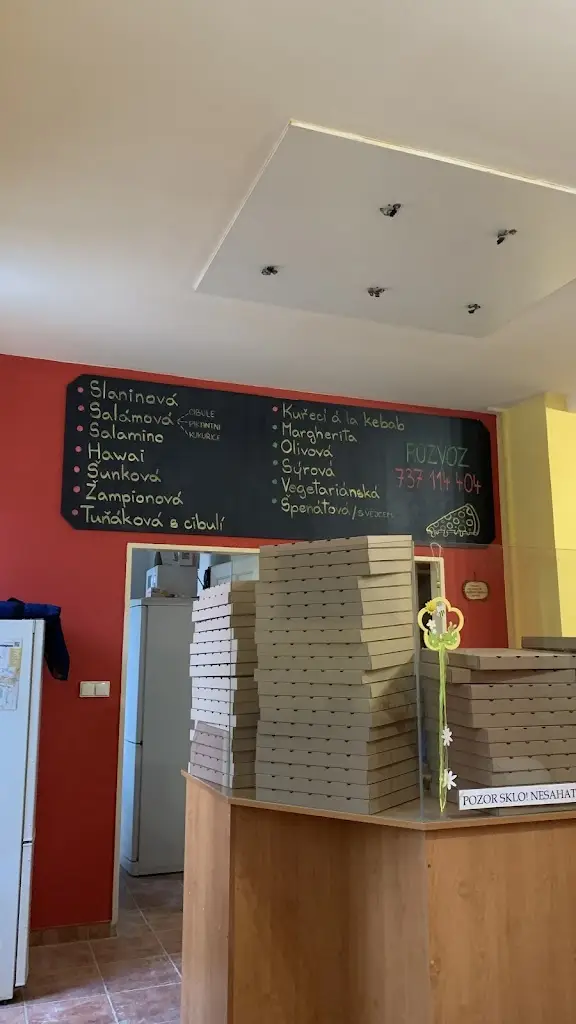 Slaninová
Salámová
CIBULE
PIKANTNÍ
KUKUŘICE
Salamino
Hawai
Šunková
Žampionová
Tuňáková s cibulí
Kuřecí á la kebab
Margherita
Olivová
Sýrová
Vegetariánská
Špenátová/s VEJCEM
ROZVOZ
737 114 404
POZOR SKLO! NESAHAT